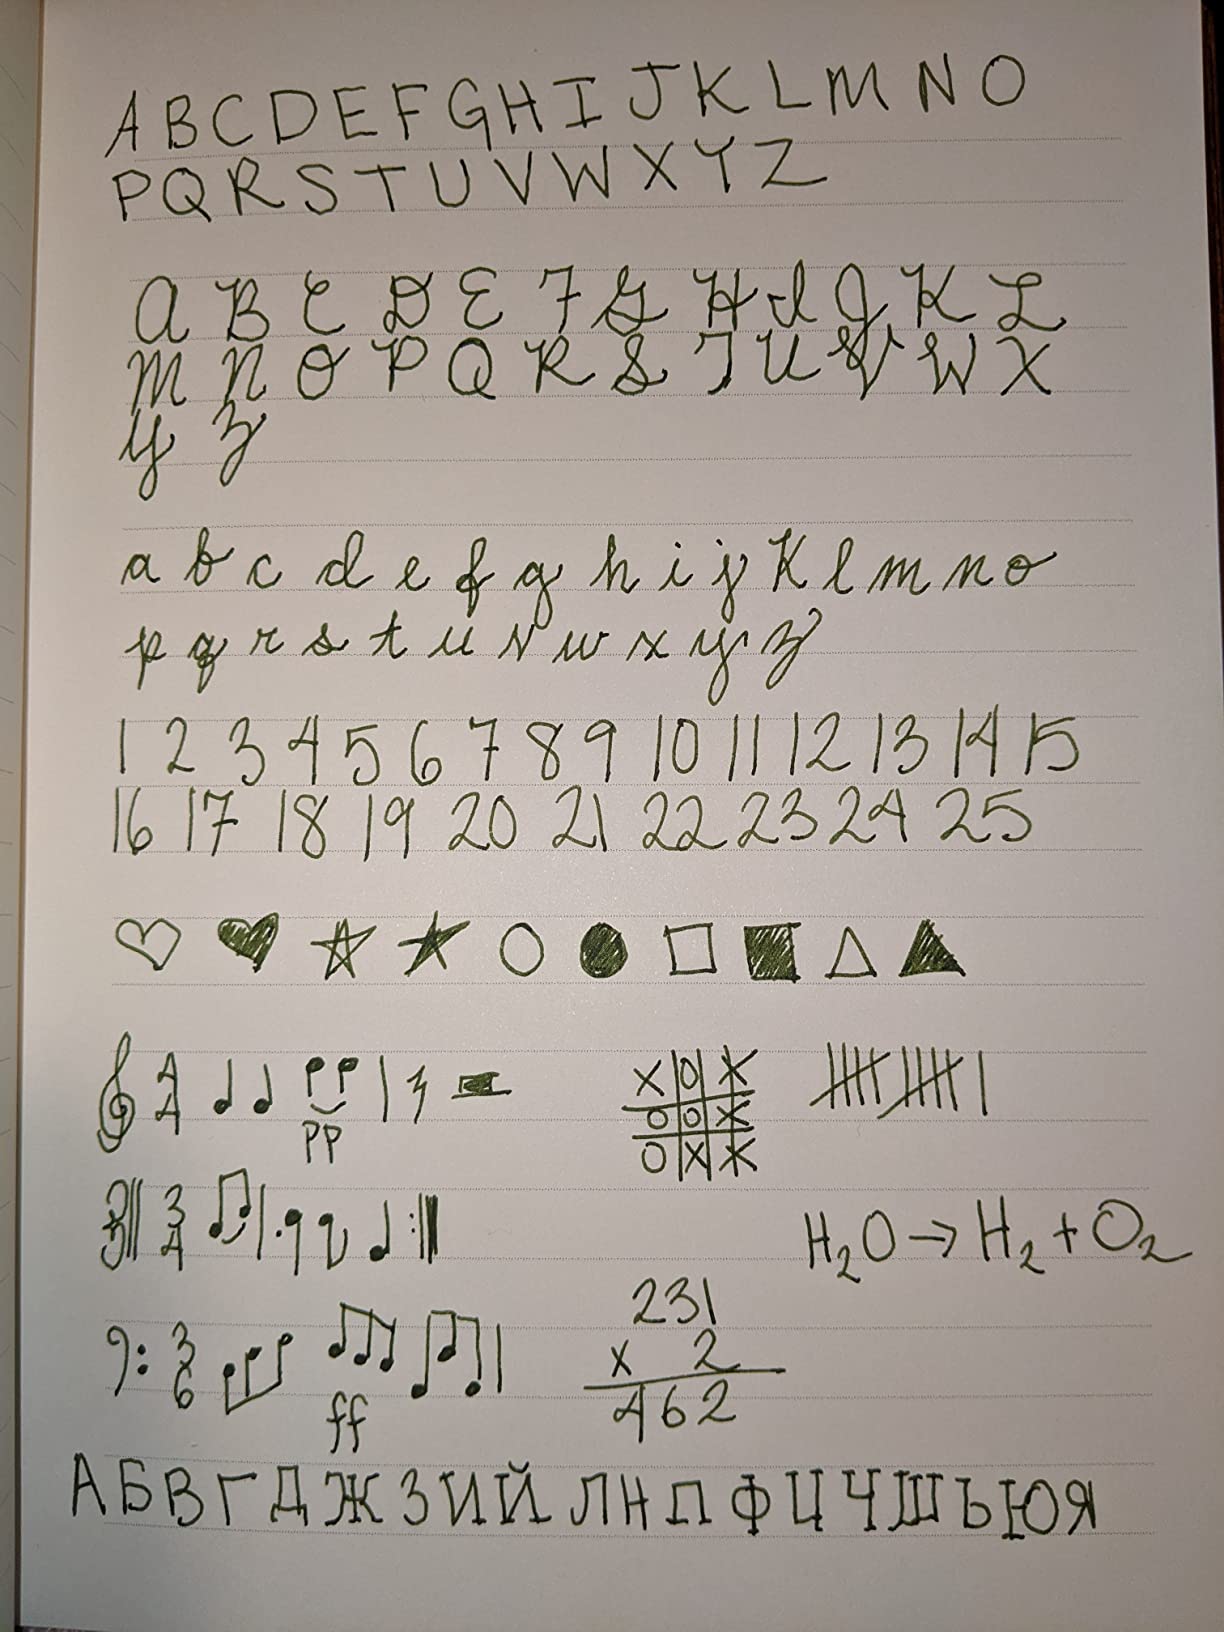 A B C D E F G H I J K L M N O
P Q R S T U V W X Y Z
A B C D E F G H I J K L
M N O P Q R S T U V W X
Y Z
a b c d e f g h i j k l m n o
p q r s t u v w x y z
1 2 3 4 5 6 7 8 9 10 11 12 13 14 15
16 17 18 19 20 21 22 23 24 25
♡ ♥ ☆ ★ ○ ● □ ■ △ ▲
4
4
pp
X O X
O O X
O X X
3
4
H₂O → H₂ + O₂
3
6
ff
231
x 2
462
А Б В Г Д Ж З И Й Л Н П Ф Ц Ч Ш Ъ Ю Я